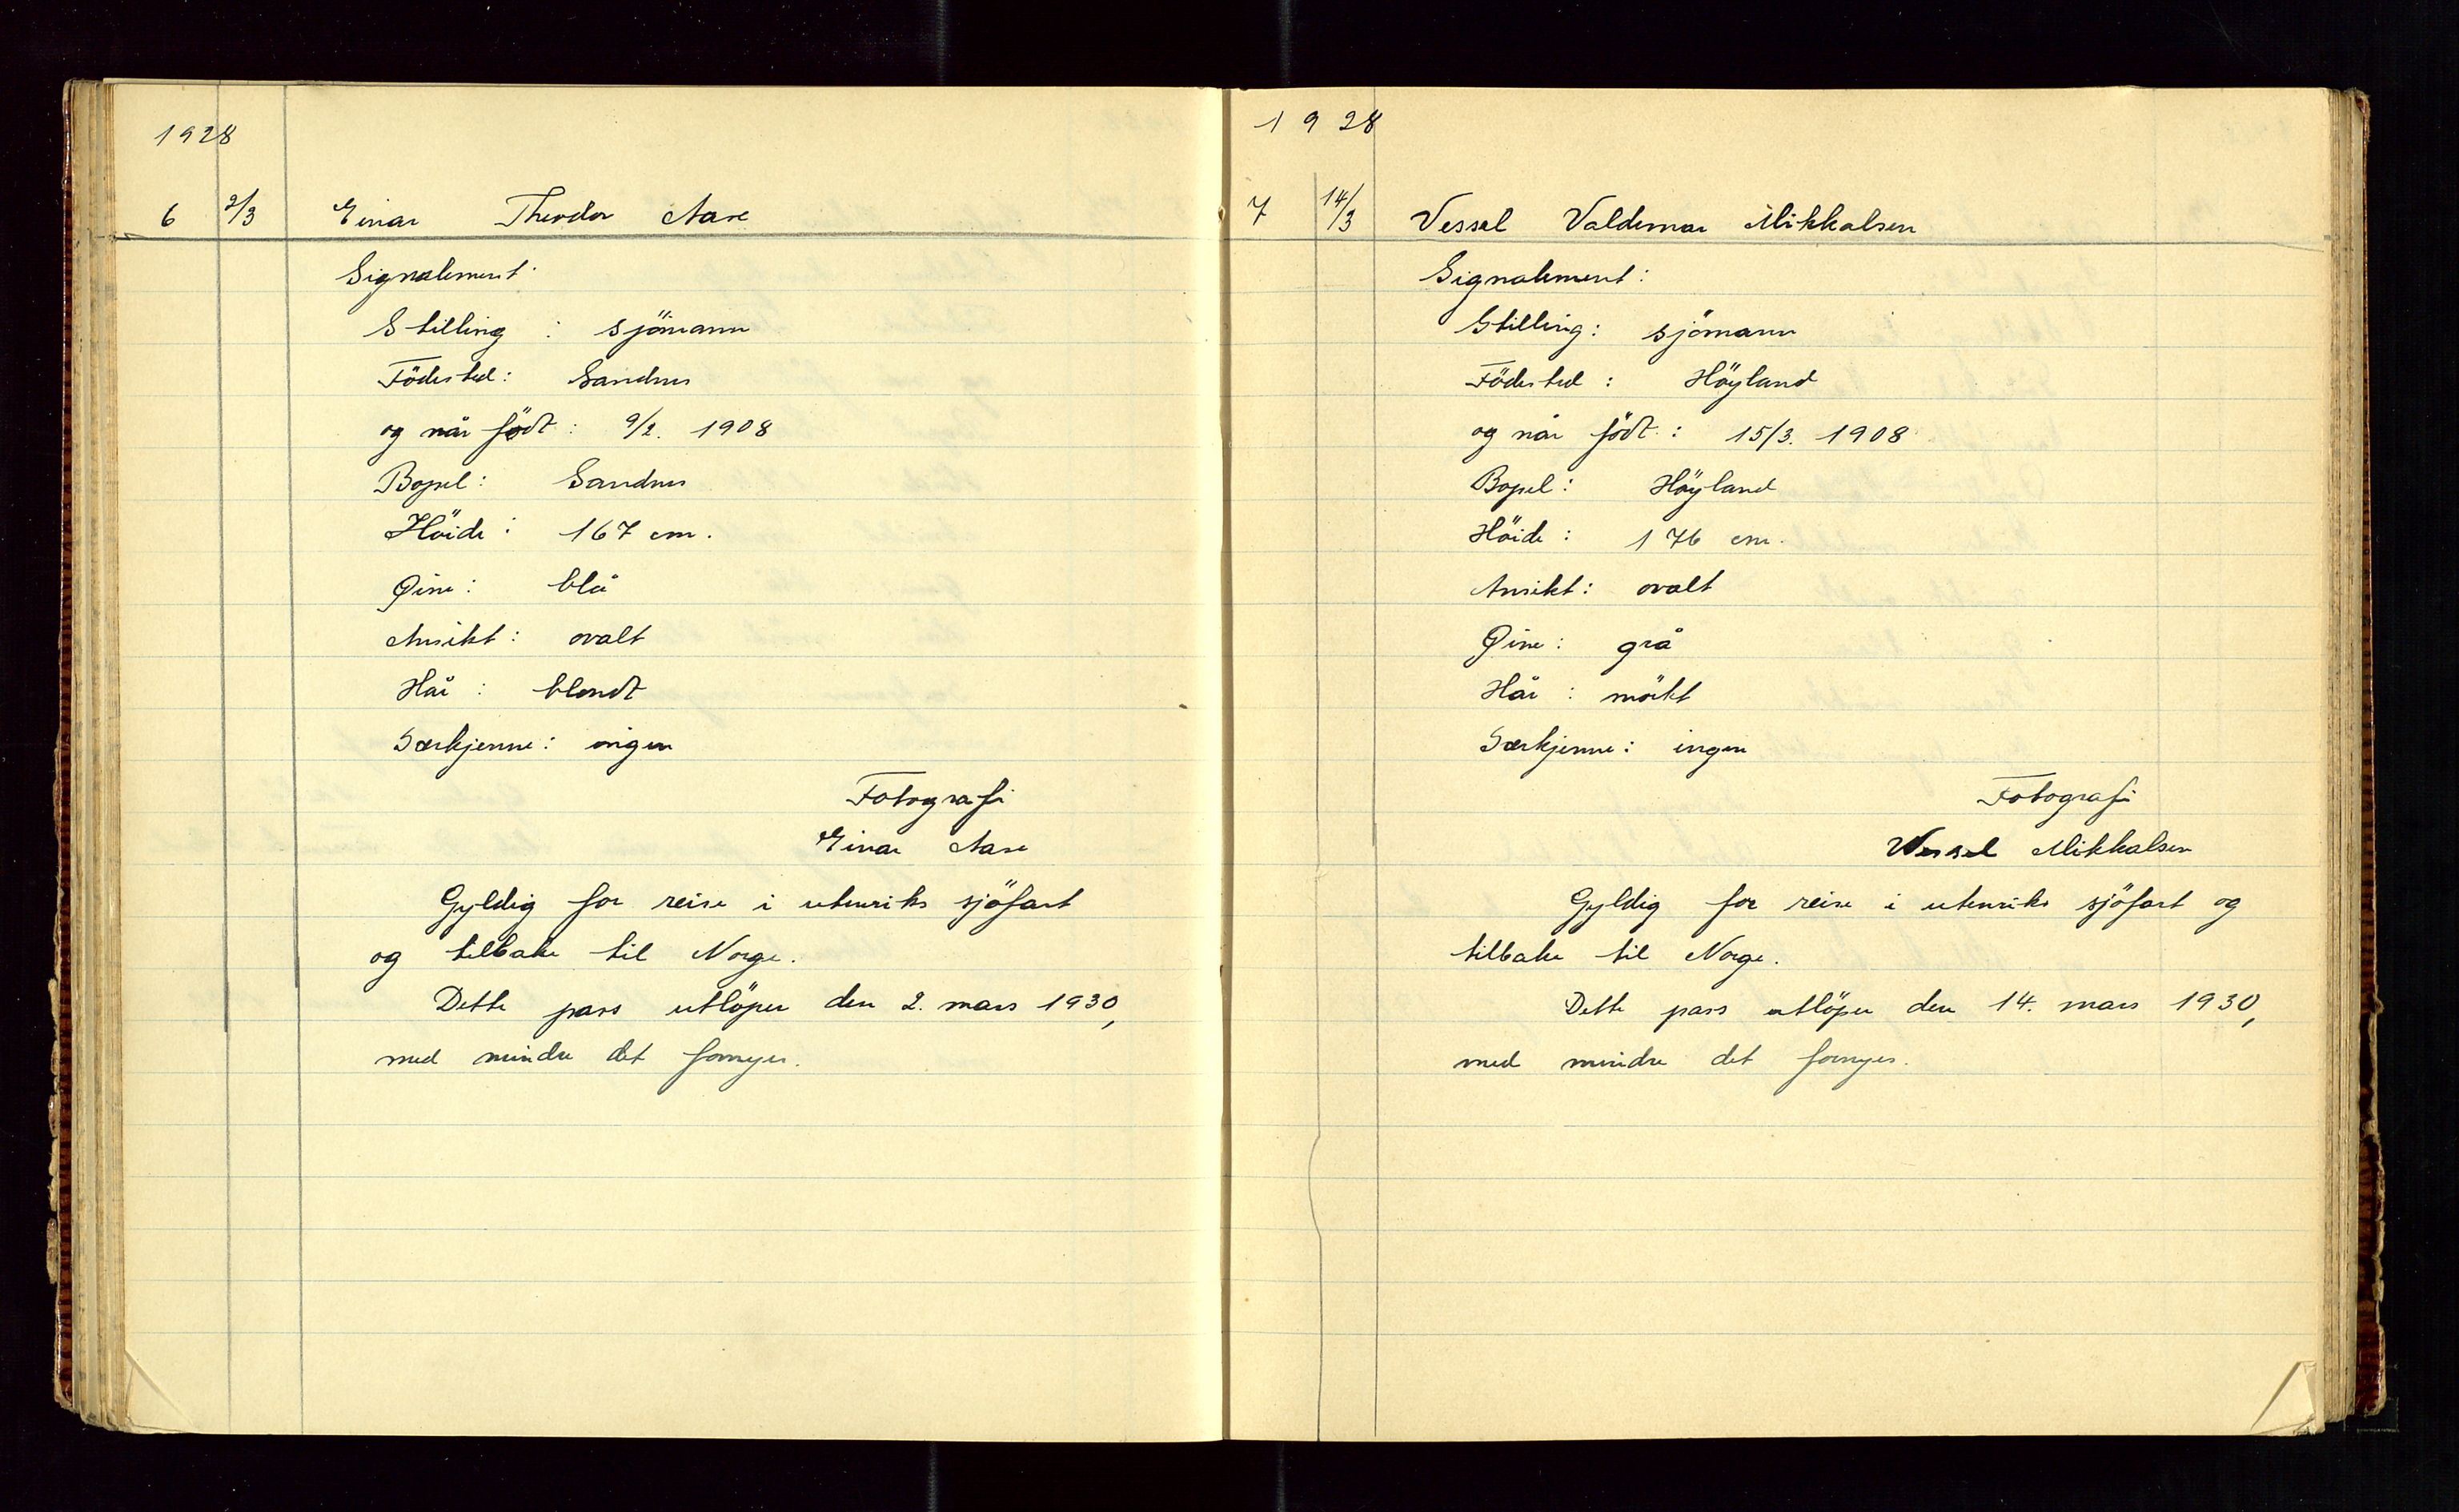 1928
6 2/3 Einar Theodor Aase
Signalement:
Stilling : sjömann
Födested: Sandnes
og når født : 9/2. 1908
Bopel: Sandnes
Höide : 167 cm.
Øine: blå
Ansikt: ovalt
Hår : blondt
Særkjenne: ingen
Fotografi
Einar Aase
Gyldig for reise i utenriks sjöfart
og tilbake til Norge.
Dette pass utlöper den 2. mars 1930,
med mindre det fornyes.
1928
7 14/3 Vessel Valdemar Mikkalsen
Signalement:
Stilling: sjömann
Födested : Höyland
og når födt : 15/3. 1908
Bopel: Höyland
Höide : 176 cm.
Ansikt: ovalt
Øine: grå
Hår : mörkt
Særkjenne: ingen
Fotografi
Wessel Mikkalsen
Gyldig for reise i utenriks sjöfart og
tilbake til Norge.
Dette pass utlöper den 14. mars 1930,
med mindre det fornyes.